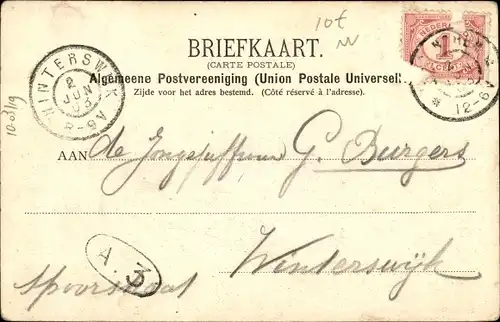 10-0319
10t
BRIEFKAART.
(CARTE POSTALE)
Algemeene Postvereeniging (Union Postale Universelle
Zijde voor het adres bestemd. (Côté réservé à l'adresse).
WINTERSWYK
2
JUN
8-9V
NEDERLAND
1
CENT
12-6
AAN de Jongejuffrouw G. Burgers
Winterswijk
A. 3
Spoorstraat